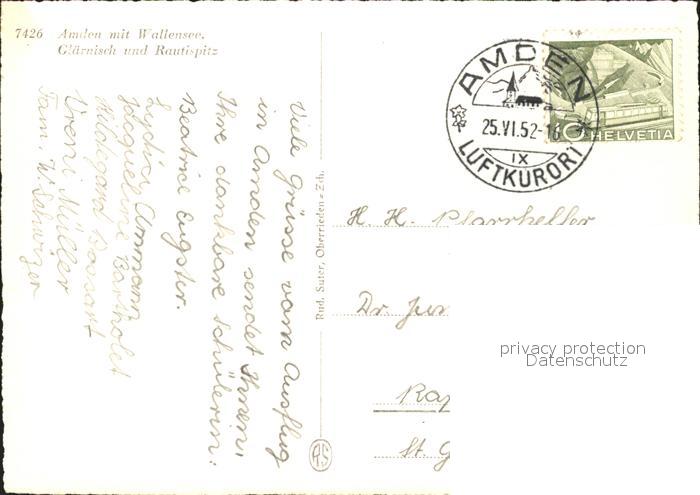 7426 Amden mit Wallensee.
Glärnisch und Rautispitz
AMDEN
25.VI.52-18
IX
LUFTKURORT
10 HELVETIA
Viele Grüsse vom Ausflug
in Amden sendet Ihnen,
Ihre dankbare Schülerin:
Beatrice Eugster.
Lydia Ammann
Jaqueline Bartholet
Hildegard Bossart
Vreni Müller
Fam. W. Schwizer
Rud. Suter, Oberrieden-Zch.
RS
H. H. Pfarrhelfer
Dr. Jur
privacy protection
Datenschutz
Rap
St. G